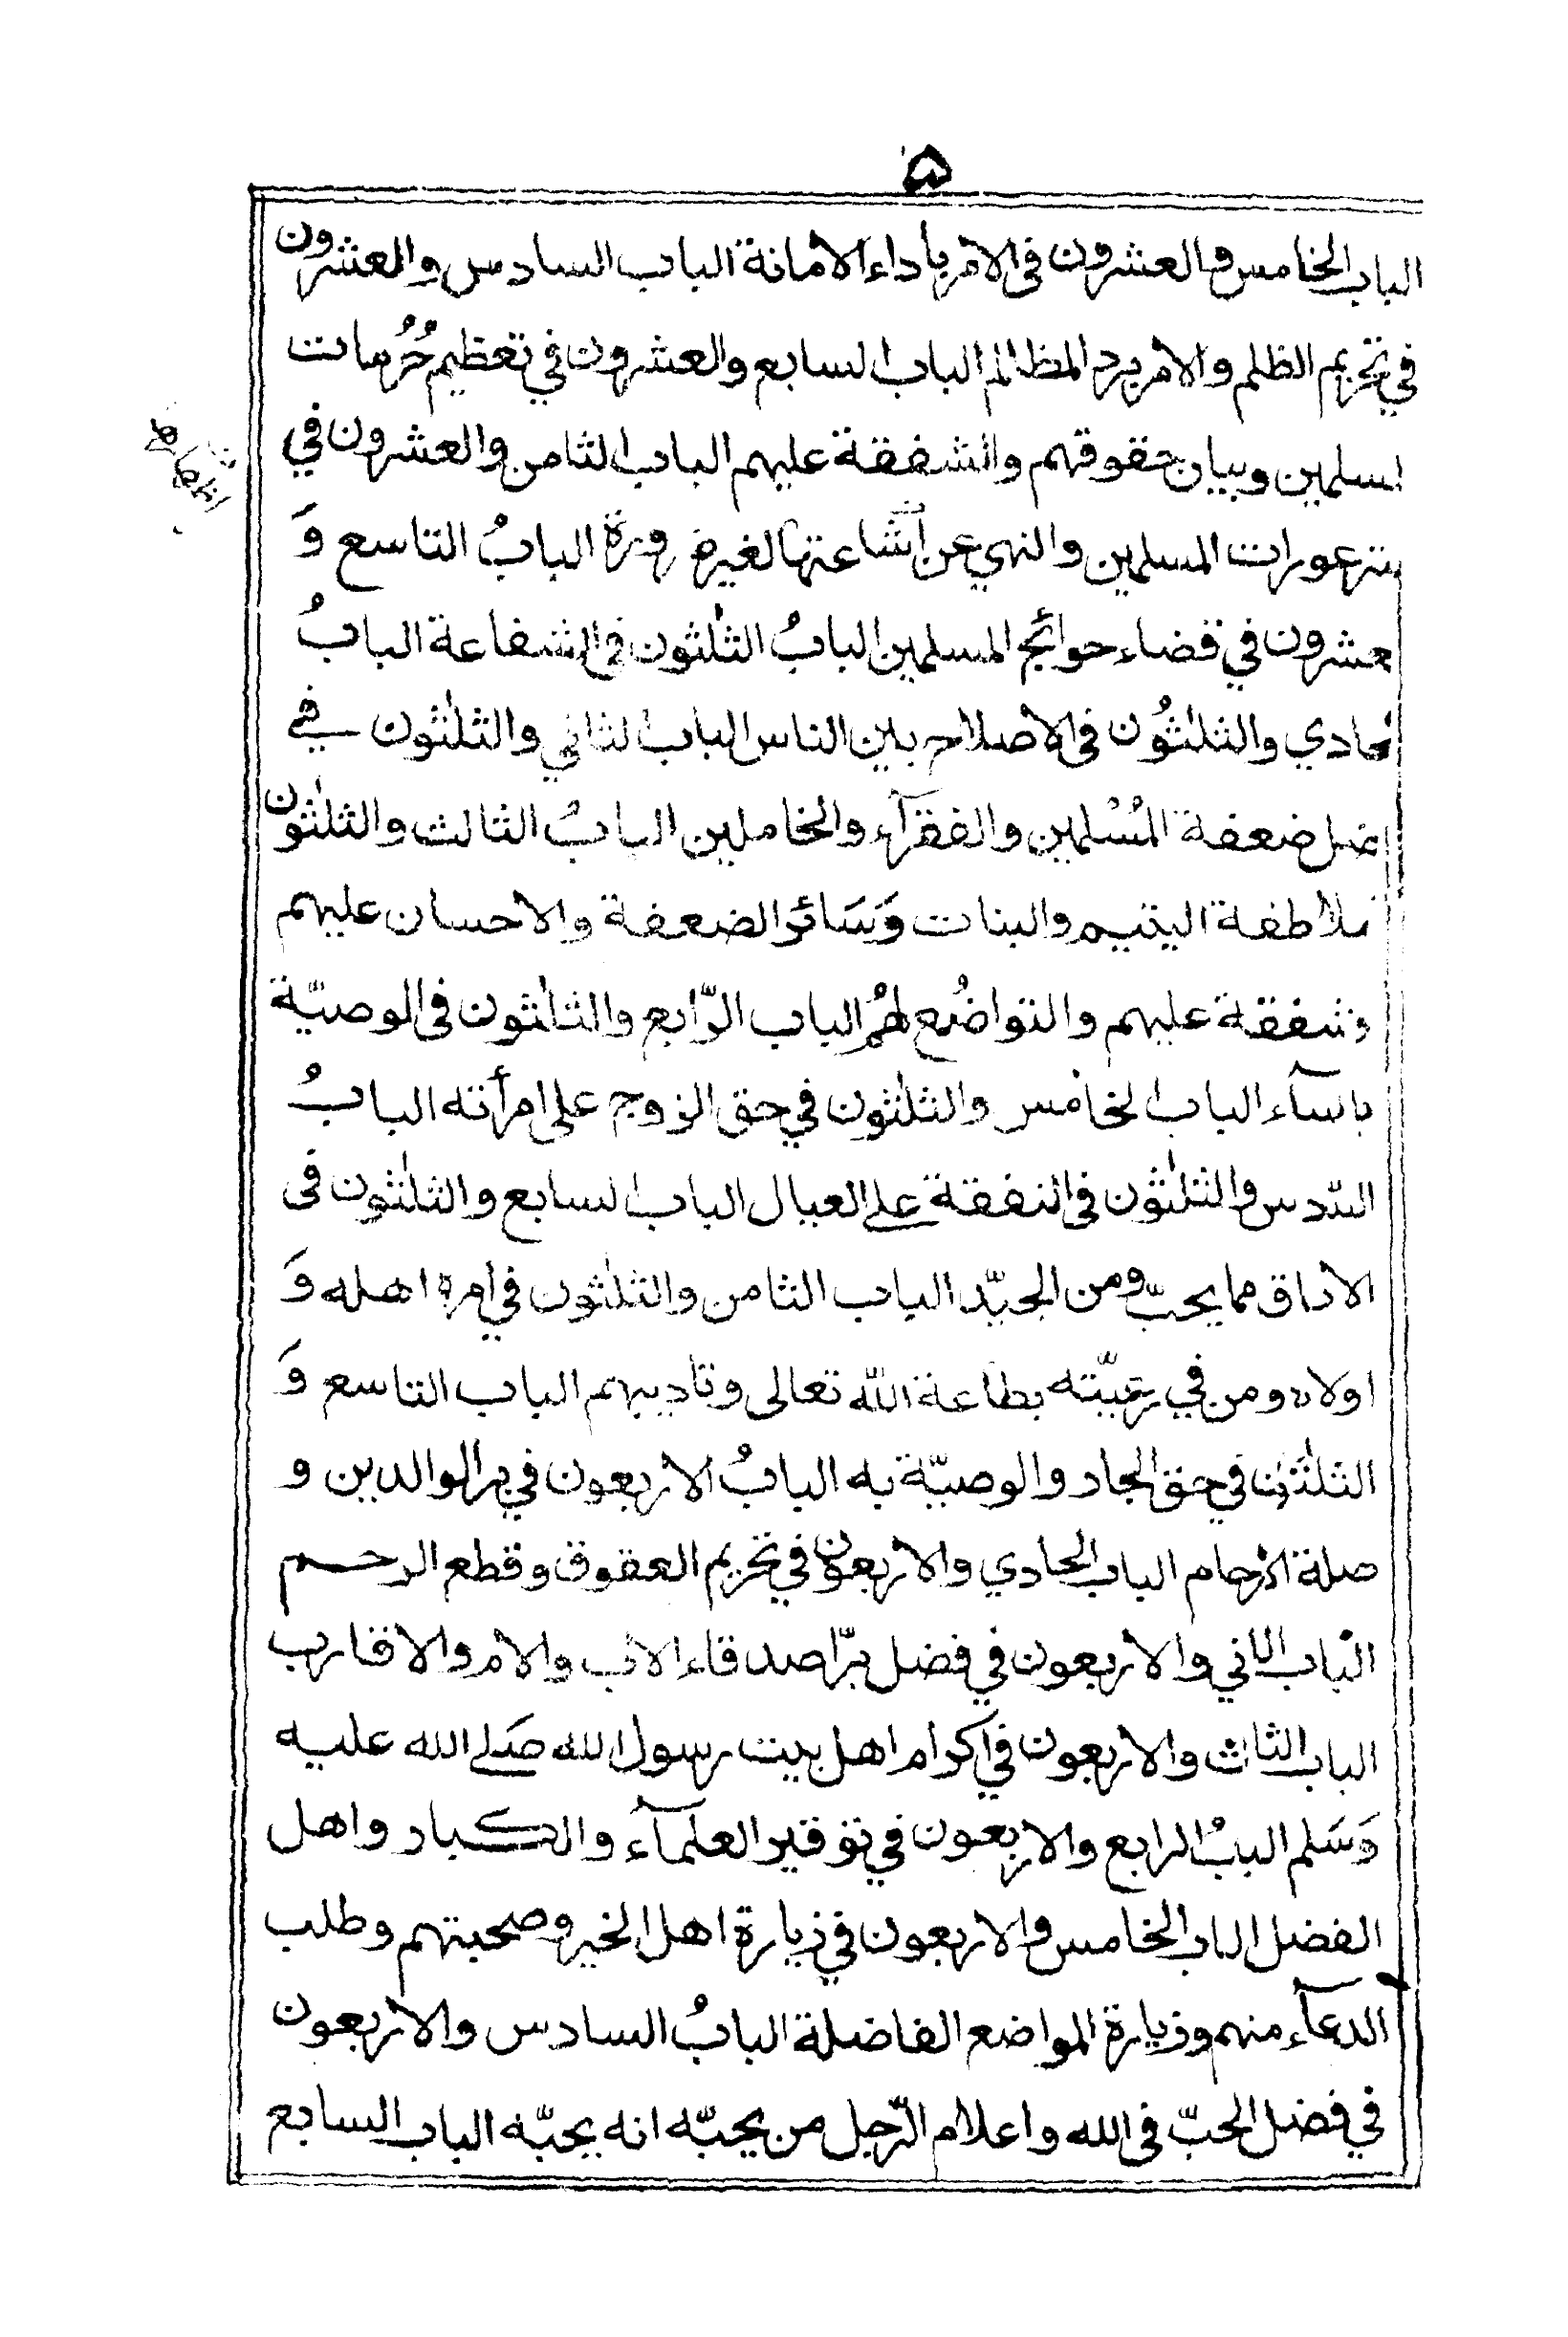 ۵
الباب الخامس والعشرون في الامر بأداء الامانة الباب السادس والعشرون
في تحريم الظلم والامر برد المظالم الباب السابع والعشرون في تعظيم حُرُمات
لمسلمين وبيان حقوقهم والشفقة عليهم الباب الثامن والعشرون في
ستر عورات المسلمين والنهي عن اشاعتها لغير ضرورة البابُ التاسع وَ
لعشرون في قضاء حوائج المسلمين البابُ الثلٰثون في الشفاعة البابُ
لحادي والثلٰثُون في الاصلاح بين الناس الباب الثاني والثلٰثون في
فضل ضعفة المُسْلمين والفقرآء والخاملين البابُ الثالث والثلٰثون
ملاطفة اليتيم والبنات وَسَائر الضعفة والاحسان عليهم
وشفقة عليهم والتواضُع لهُم الباب الرّابع والثلٰثون في الوصيّة
بالنسآء الباب الخامس والثلٰثون في حق الزوج على امرأته البابُ
السّدس والثلٰثون في النفقة على العيال الباب السابع والثلٰثون في
الانفاق مما يحبّ ومن الجيّد الباب الثامن والثلٰثون في امره اهله وَ
اولاده ومن في رعيّته بطاعة الله تعالى وتاديبهم الباب التاسع وَ
الثلٰثون في حق الجار والوصيّة به البابُ الاربعون في بر الوالدين و
صلة الارحام الباب الحادي والاربعون في تحريم العقوق وقطع الرحم
الباب الثاني والاربعون في فضل برّ اصدقاء الاب والام والاقارب
الباب الثالث والاربعون في اكرام اهل بيت رسول الله صَلى الله عليه
وَسَلم البابُ الرابع والاربعون في توقير العلمآء والكبار واهل
الفضل الباب الخامس والاربعون في زيارة اهل الخير وصحبتهم وطلب
الدعآء منهم وزيارة المواضع الفاضلة البابُ السادس والاربعون
في فضل الحبّ في الله واعلام الرّجل من يحبّه انه يحبّه الباب السابع